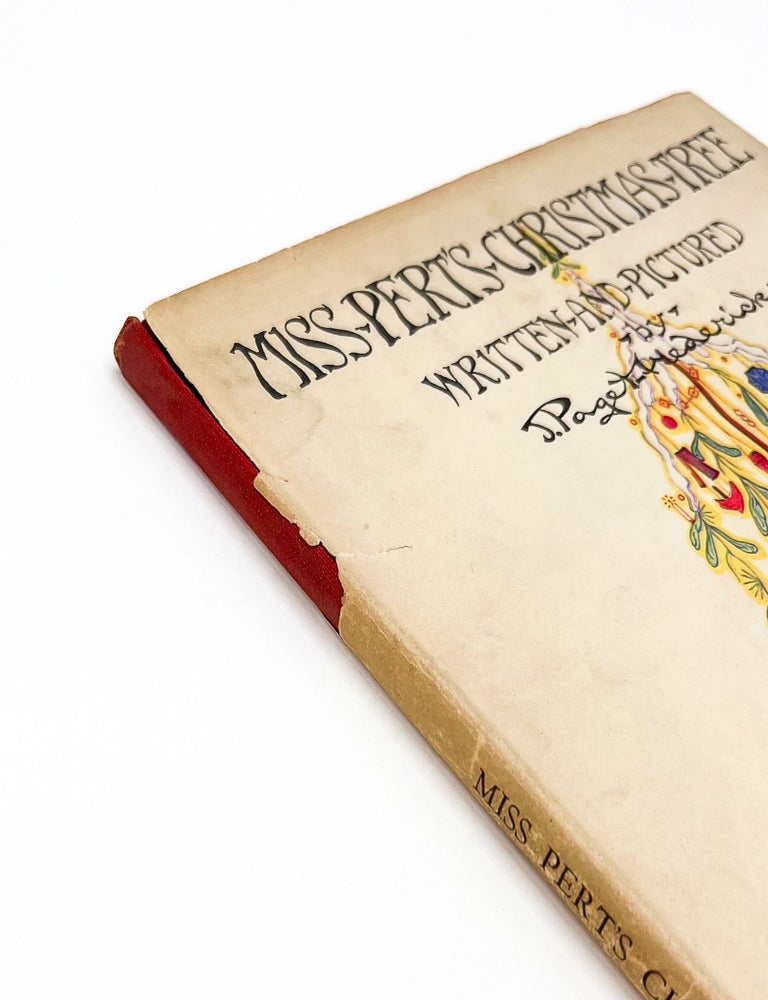 MISS-PERT'S-CHRISTMAS-TREE
WRITTEN-AND-PICTURED
-by-
J. Paget-Fredericks
MISS PERT'S